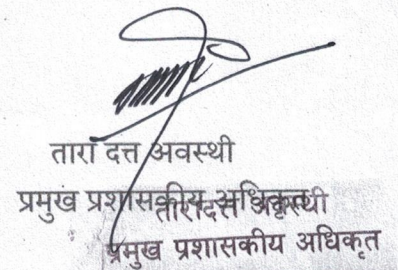 तारा दत्त अवस्थी
प्रमुख प्रशासकीय अधिकृत
तारा दत्त अवस्थी
प्रमुख प्रशासकीय अधिकृत